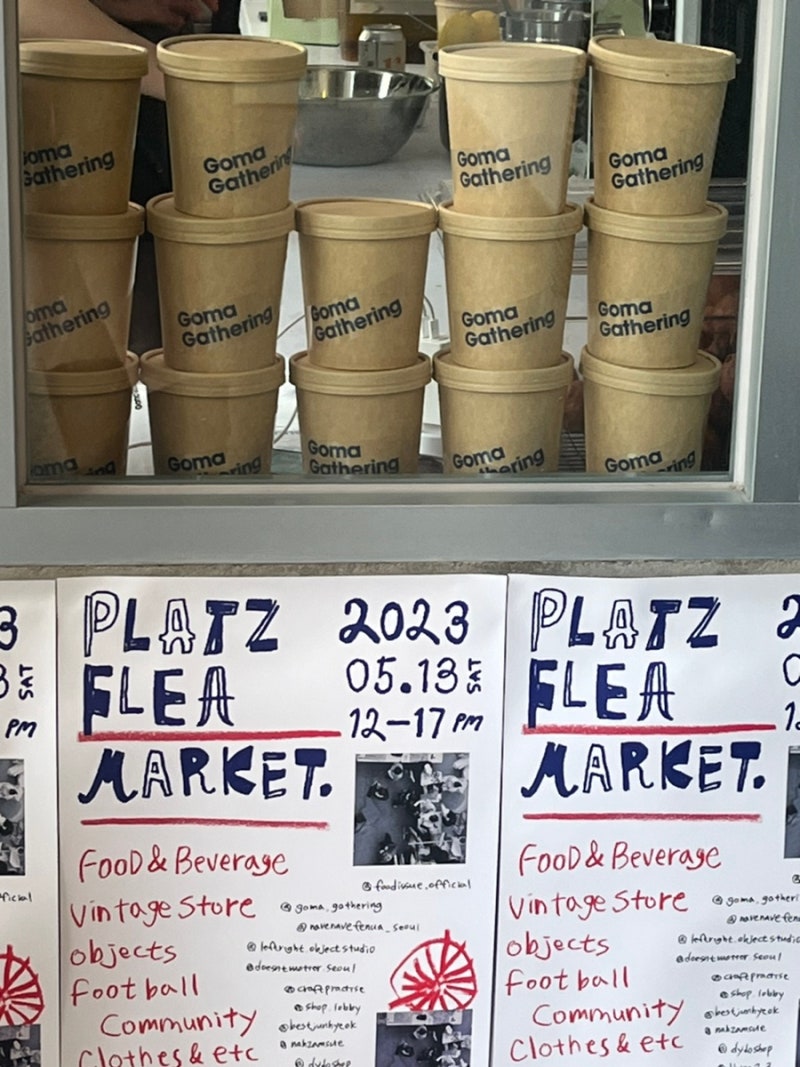 Goma
Gathering
Goma
Gathering
Goma
Gathering
Goma
Gathering
Goma
Gathering
Goma
Gathering
Goma
Gathering
Goma
Gathering
Goma
Gathering
Goma
Gathering
Goma
Gathering
Goma
Gathering
Goma
Gathering
PLATZ
FLEA
MARKET.
2023
05.13 SAT
12-17 PM
Food & Beverage
Vintage Store
objects
Football
Community
Clothes & etc
@foodissue.official
@goma.gathering
@navenavefenua_seoul
@leftright.objectstudio
@doesntmatter.seoul
@craftpractise
@shop.lobby
@bestjunhyeok
@nahzamsule
@dyboshop
SAT
PM
PLATZ
FLEA
MARKET.
Food & Beverage
Vintage Store
objects
Football
Community
Clothes & etc
@leftright.objectstudio
@doesntmatter.seoul
@craftpractise
@shop.lobby
@bestjunhyeok
@nahzamsule
@dyboshop